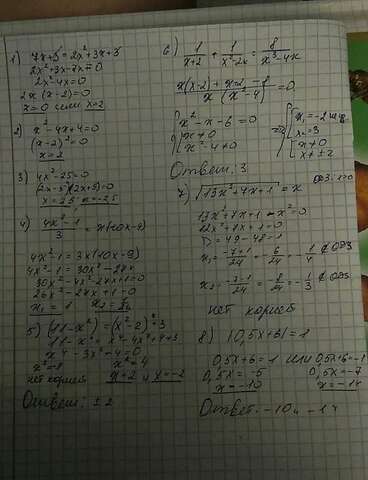 1) 7x+5=2x²+3x+5
2x²+3x-7x=0
2x²-4x=0
2x(x-2)=0
x=0 или x=2
2) x²-4x+4=0
(x-2)²=0
x=2
3) 4x²-25=0
(2x-5)(2x+5)=0
x=2,5 x=-2,5
4) (4x²-1)/3 = x(10x-9)
4x²-1=3x(10x-9)
4x²-1=30x²-27x
30x²-4x²-27x+1=0
26x²-27x+1=0
x₁=1
5) (11-x²)=(x²-2)²+3
11-x²=x⁴-4x²+4+3
x⁴-3x²-4=0
x²=-1 x²=4
нет корней x=2 и x=-2
Ответ: ±2
6) 1/(x+2) + 1/(x²-2x) = 8/(x³-4x)
(x(x-2)+x+2-8)/(x(x²-4))=0
x²-x-6=0
x≠0
x²-4≠0
x₁=-2 или
x₂=3
x≠0
x≠±2
Ответ: 3
7) √(13x²+7x+1)=x
13x²+7x+1-x²=0
12x²+7x+1=0
D=49-48=1
x₁=(-7+1)/24=-6/24=-1/4 ∉ ОДЗ
x₂=(-7-1)/24=-8/24=-1/3 ∉ ОДЗ
нет корней
8) |0,5x+6|=1
0,5x+6=1 или 0,5x+6=-1
0,5x=-5 0,5x=-7
x=-10 x=-14
Ответ: -10 и -14